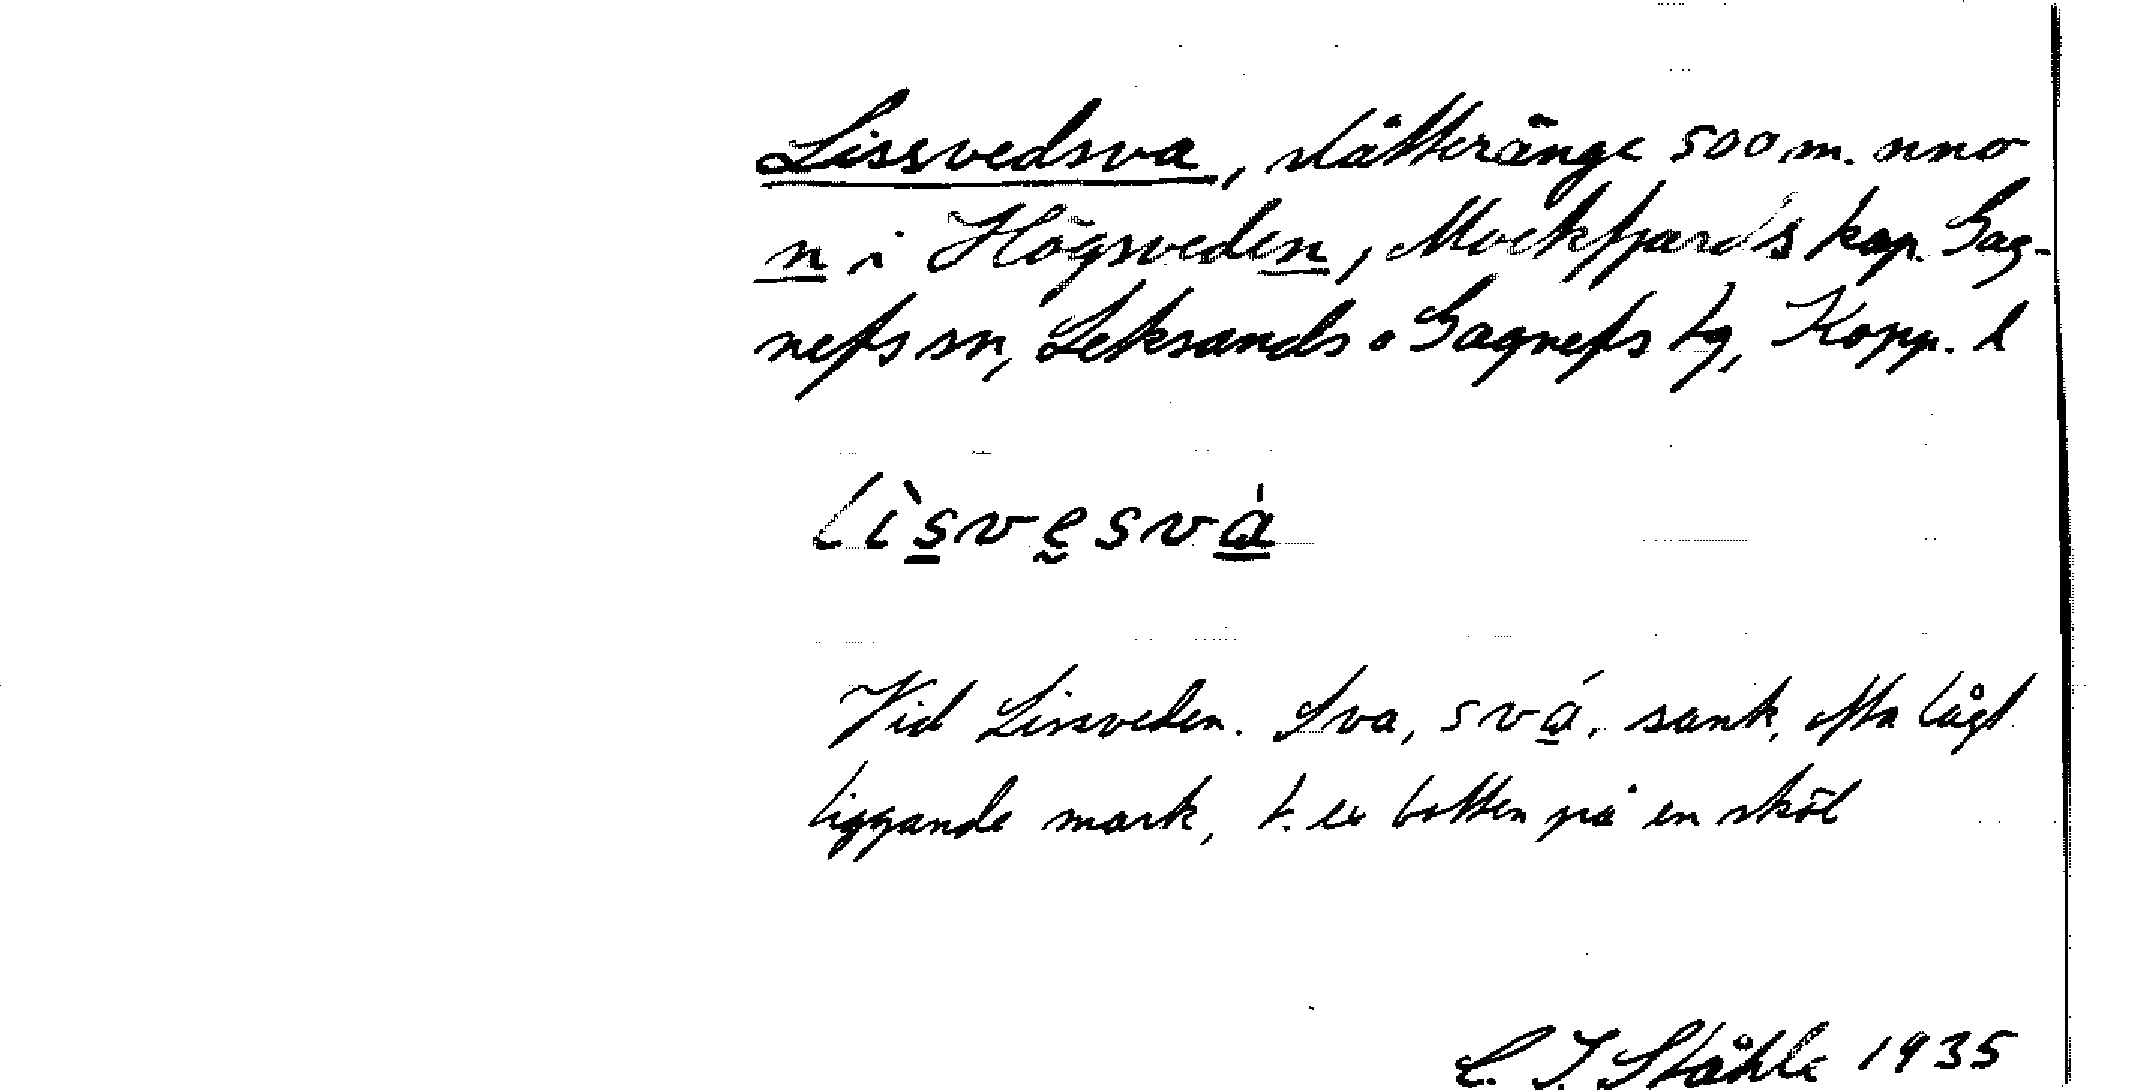 Lissvedsva, slåtteränge 500 m. nno
n i Högsveden, Mockfjärds kap. Gag-
nefs sn, Leksands o Gagnefs tg, Kopp. l
lìsvesvá
Vid Lissveden. Sva, svá, sank, ofta lågt
liggande mark, t. ex botten på en sköl
C. I. Ståhle 1935